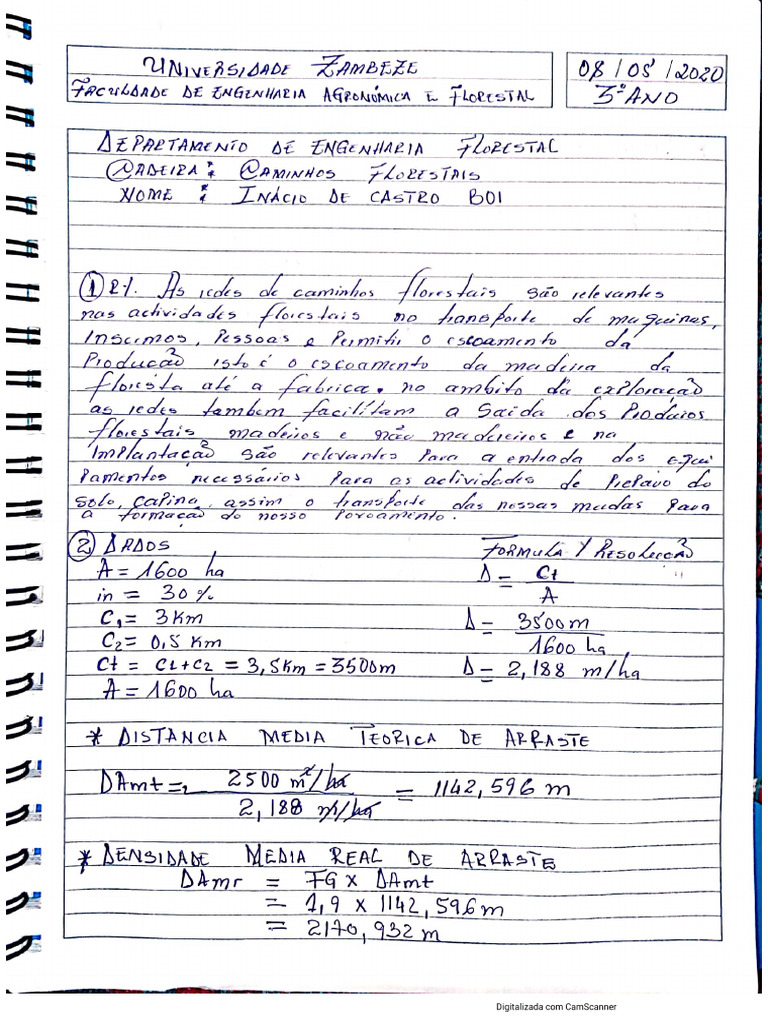 UNIVERSIDADE ZAMBEZE
FACULDADE DE ENGENHARIA AGRONÓMICA E FLORESTAL
08/05/2020
3º ANO
DEPARTAMENTO DE ENGENHARIA FLORESTAL
CADEIRA: CAMINHOS FLORESTAIS
NOME: INÁCIO DE CASTRO BOI
1 R/. As redes de caminhos florestais são relevantes
nas actividades florestais no transporte de maquinas,
Insumos, Pessoas e Permitir o escoamento da
Produção isto é o escoamento da madeira da
floresta até a fabrica. no ambito da exploração
as redes tambem facilitam a Saida dos Produtos
florestais madeiros e não madereiros e na
implantação são relevantes Para a entrada dos equi
Pamentos necessários Para as actividades de Preparo do
Solo, capina, assim o transporte das nossas mudas Para
a formação do nosso Povoamento.
2 DADOS
FORMULA Y RESOLUCÇÃO
A = 1600 ha
in = 30%
C1 = 3 Km
C2 = 0,5 Km
Ct = C1+C2 = 3,5Km = 3500m
A = 1600 ha
Δ = Ct / A
Δ = 3500 m / 1600 ha
Δ = 2,188 m/ha
* DISTANCIA MEDIA TEORICA DE ARRASTE
DAmt = 2500 m²/ha / 2,188 m/ha = 1142,596 m
* DENSIDADE MEDIA REAL DE ARRASTE
DAmr = FG x DAmt
= 1,9 x 1142,596 m
= 2170,932 m
Digitalizada com CamScanner